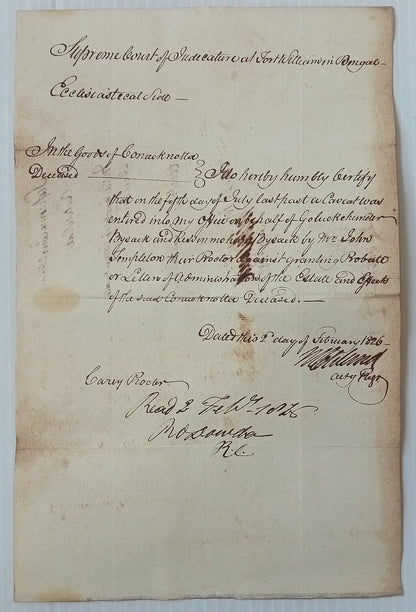 Supreme Court of Judicature at Fort William in Bengal
Ecclesiastical Side
In the Goods of Conucknotta
Deceased
I do hereby humbly Certify
that on the fifth day of July last past a Caveat was
entered into my Office on behalf of Goluckchunder
Bysack and Kissenmohun Bysack by Mr. John
Templeton their Proctor against granting Probate
or Letters of Administration of the Estate and Effects
of the said Conucknotta Deceased.
Dated this 2d day of February 1826
Actg Regr
Carey Procter
Read 2 Feby. 1826
R.C.